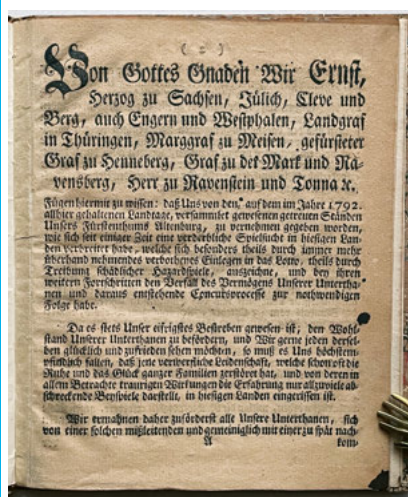 ( 2 )
Von Gottes Gnaden Wir Ernst,
Herzog zu Sachsen, Jülich, Cleve und
Berg, auch Engern und Westphalen, Landgraf
in Thüringen, Marggraf zu Meisen, gefürsteter
Graf zu Henneberg, Graf zu der Mark und Ra-
vensberg, Herr zu Ravenstein und Tonna ꝛc.
Fügen hiermit zu wissen: daß Uns von den, auf dem im Jahre 1792.
allhier gehaltenen Landtage, versammlet gewesenen getreuen Ständen
Unsers Fürstenthums Altenburg, zu vernehmen gegeben worden,
wie sich seit einiger Zeit eine verderbliche Spielsucht in hiesigen Lan-
den verbreitet habe, welche sich besonders theils durch immer mehr
überhand nehmendes verbothenes Einlegen in das Lotto, theils durch
Treibung schädlicher Hazardspiele, auszeichne, und bey ihren
weitern Fortschritten den Verfall des Vermögens Unserer Untertha-
nen und daraus entstehende Concursprocesse zur nothwendigen
Folge habe.
Da es stets Unser eifrigstes Bestreben gewesen ist, den Wohl-
stand Unserer Unterthanen zu befördern, und Wir gerne jeden dersel-
ben glücklich und zufrieden sehen möchten, so muß es Uns höchstem-
pfindlich fallen, daß jene verwerfliche Leidenschaft, welche schon oft die
Ruhe und das Glück ganzer Familien zerstöret hat, und von deren in
allem Betrachte traurigen Wirkungen die Erfahrung nur allzuviele ab-
schreckende Beyspiele darstellt, in hiesigen Landen eingerissen ist.
Wir ermahnen daher zuförderst alle Unsere Unterthanen, sich
von einer solchen mißleitenden und gemeiniglich mit einer zu spät nach-
A kom-